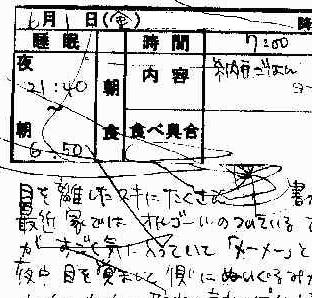 6月1日(金)
睡眠 時間 7:00
夜 朝 内容 納豆ごはん
21:40
朝 食 食べ具合
6:50
目を離したスキにたくさん
最近家では オルゴールのついている
がすごく気に入っていて「メーメー」と
夜中 目を覚まして 横にぬいぐるみが